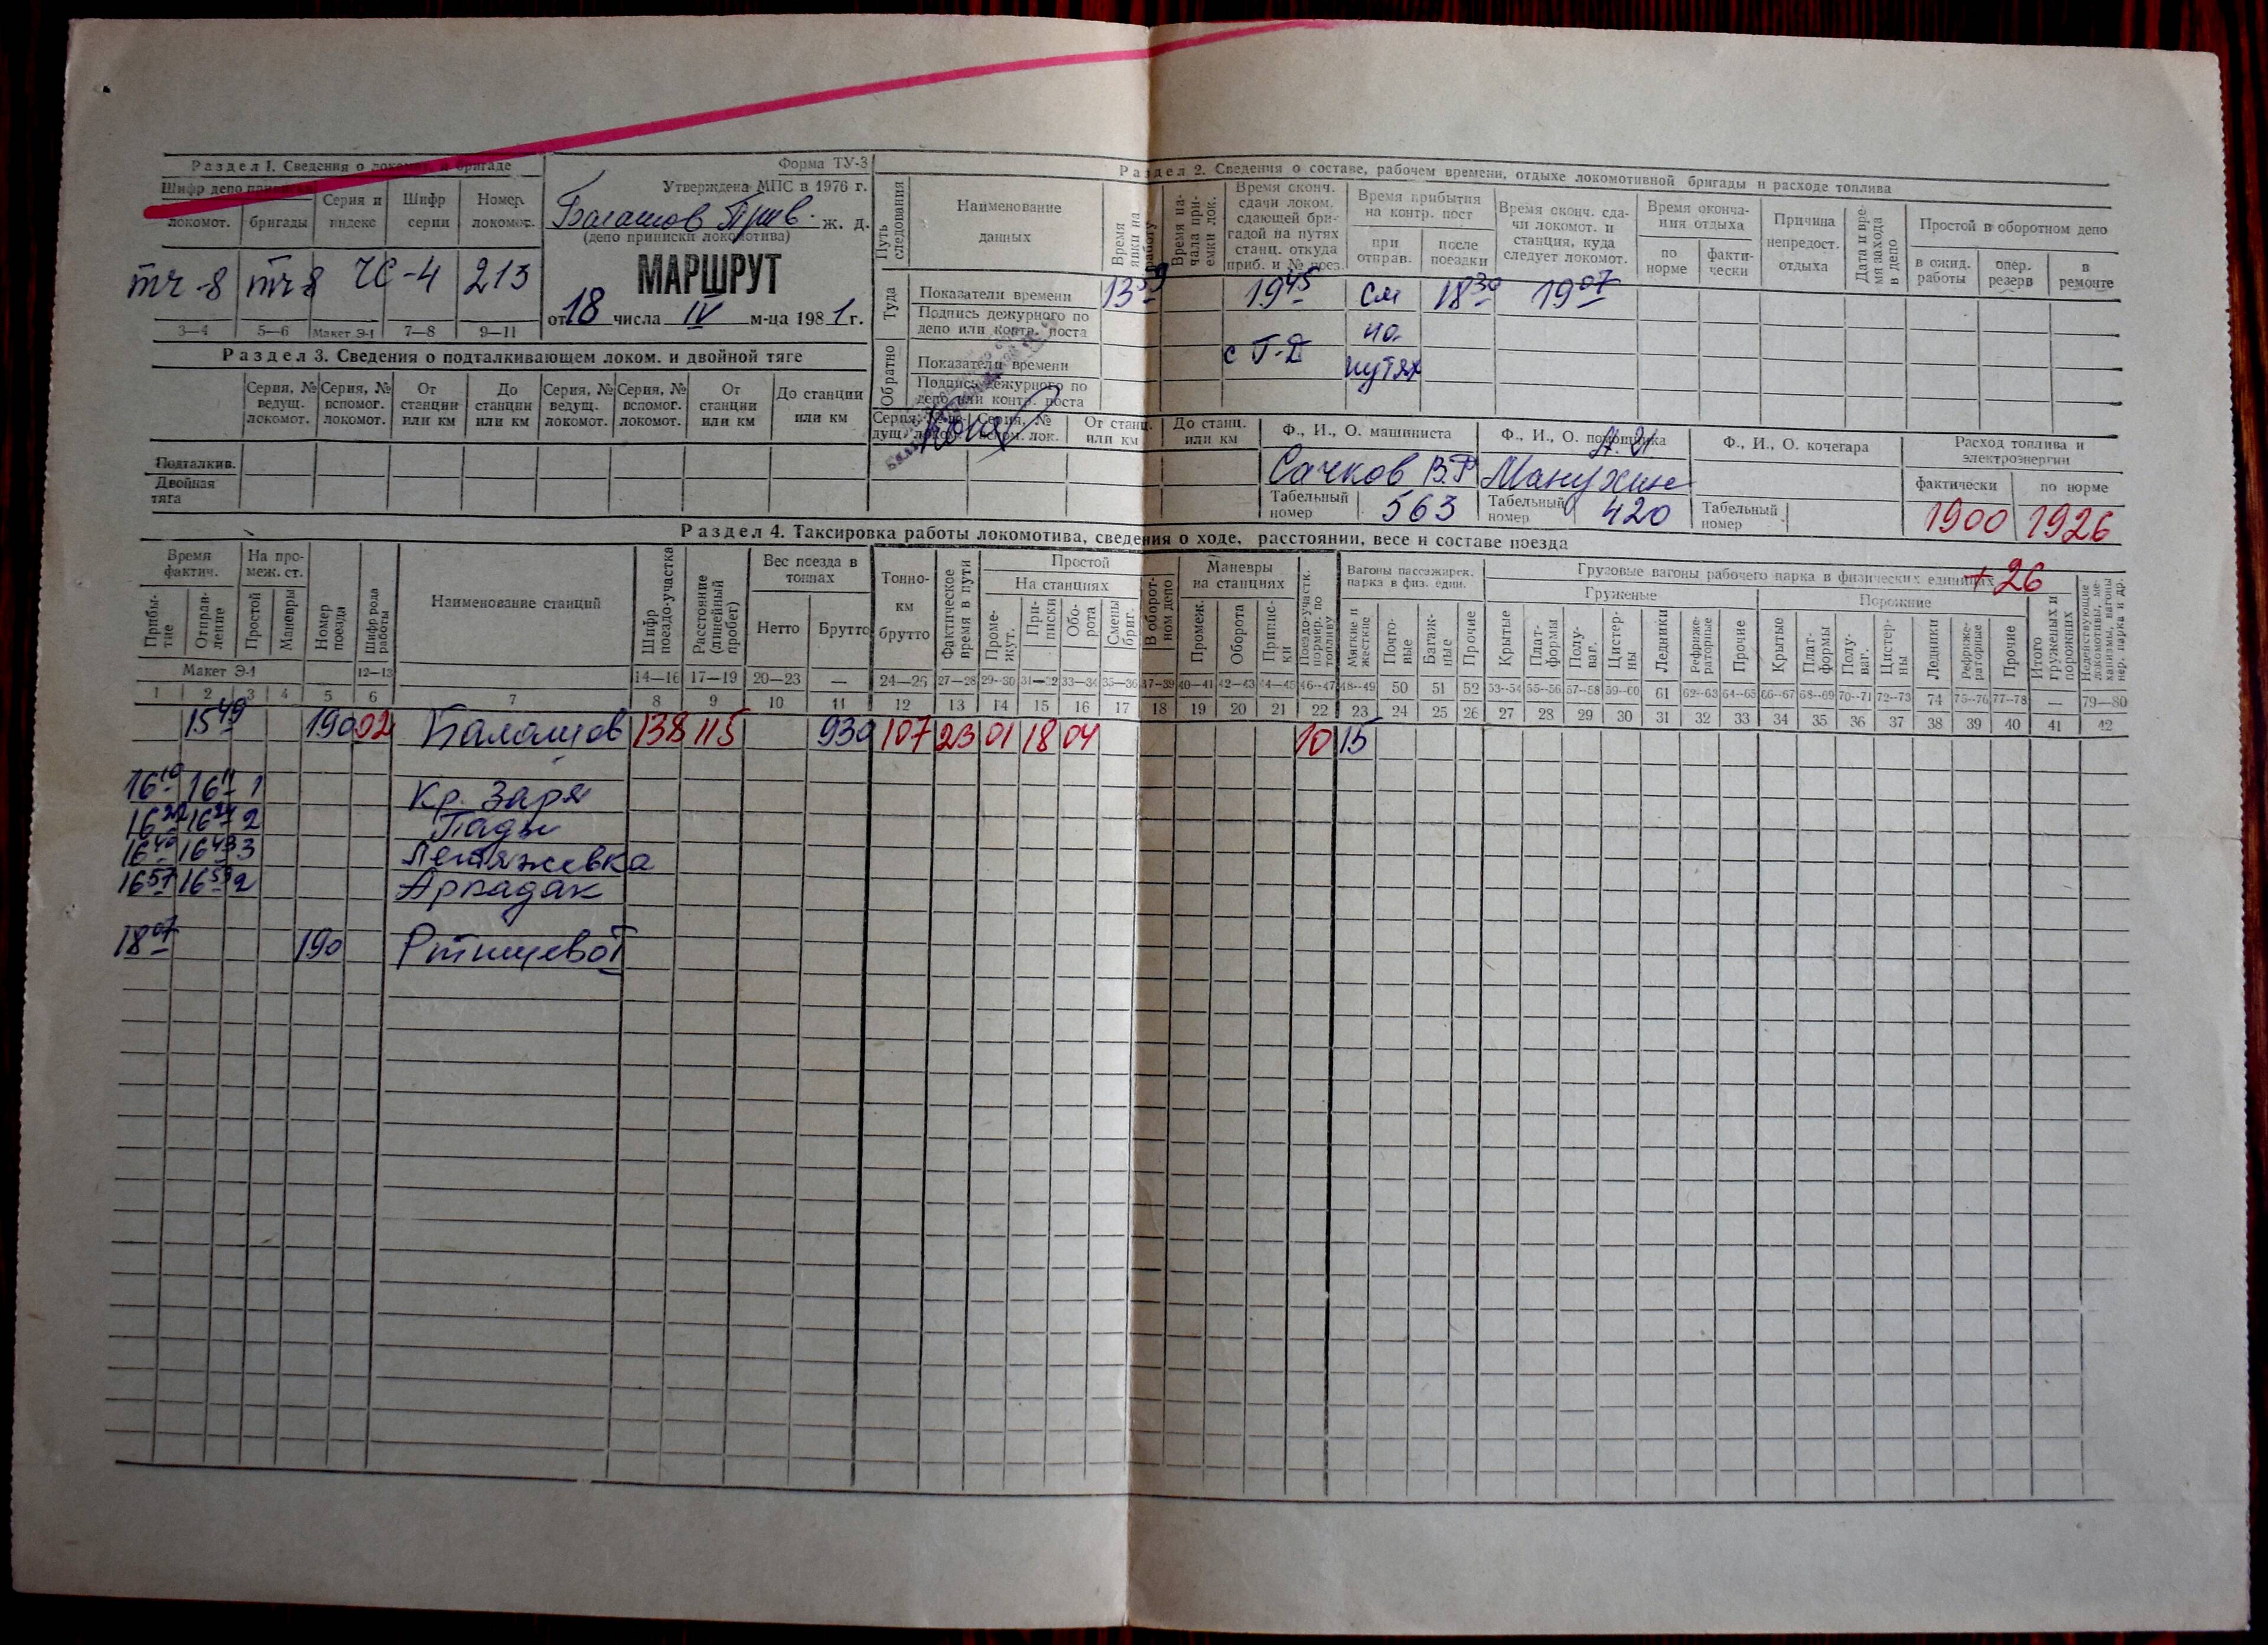 Раздел 1. Сведения о локомот. и бригаде
Шифр депо приписки
локомот.
бригады
Серия и индекс
Шифр серии
Номер локомот.
тч-8
тч 8
ЧС
-4
213
3—4
5—6
Макет Э-1
7—8
9—11
Форма ТУ-3
Утверждена МПС в 1976 г.
Балашов Прив. ж. д.
(депо приписки локомотива)
МАРШРУТ
от 18 числа IV м-ца 1981 г.
Раздел 2. Сведения о составе, рабочем времени, отдыхе локомотивной бригады и расходе топлива
Путь следования
Наименование данных
Время явки на работу
Время начала приемки лок.
Время сконч. сдачи локом. сдающей бригадой на путях станц. откуда приб. и № поез.
Время прибытия на контр. пост
при отправ.
после поездки
Время сконч. сдачи локомот. и станция, куда следует локомот.
Время окончания отдыха
по норме
фактически
Причина непредост. отдыха
Дата и время захода в депо
Простой в оборотном депо
в ожид. работы
опер. резерв
в ремонте
Туда
Показатели времени
13 59
19 45
см
18 30
19 07
Подпись дежурного по депо или контр. поста
по
Обратно
Показатели времени
путях
Подпись дежурного по депо или контр. поста
Раздел 3. Сведения о подталкивающем локом. и двойной тяге
Серия, № ведущ. локомот.
Серия, № вспомог. локомот.
От станции или км
До станции или км
Серия, № ведущ. локомот.
Серия, № вспомог. локомот.
От станции или км
До станции или км
От станц. или км
До станц. или км
Подталкив.
Двойная тяга
Ф., И., О. машиниста
Ф., И., О. помощника
Ф., И., О. кочегара
Расход топлива и электроэнергии
Сачков В.Р
Манухин
фактически
по норме
Табельный номер 563
Табельный номер 420
Табельный номер
1900
1926
+26
Раздел 4. Таксировка работы локомотива, сведения о ходе, расстоянии, весе и составе поезда
Время фактич.
Прибытие
Отправление
На промеж. ст.
Простой
Маневры
Номер поезда
Шифр рода работы
Наименование станций
Шифр поездо-участка
Расстояние (линейный пробег)
Вес поезда в тоннах
Нетто
Брутто
Тонно-км брутто
Фактическое время в пути
Простой
На станциях
Промежут.
Приписки
Оборота
Смены бриг.
В оборотном депо
Маневры на станциях
Промеж.
Оборота
Приписки
Поездо-участк. нормир. по топливу
Вагоны пассажирск. парка в физ. един.
Мягкие и жесткие
Почтовые
Багажные
Прочие
Грузовые вагоны рабочего парка в физических единицах
Груженые
Крытые
Платформы
Полуваг.
Цистерны
Ледники
Рефрижераторные
Прочие
Порожние
Крытые
Платформы
Полуваг.
Цистерны
Ледники
Рефрижераторные
Прочие
Итого груженых и порожних
Недействующие локомотивы, механизмы, вагоны нер. парка и др.
Макет Э-1 12—13 14—16 17—19 20—23 — 24—26 27—28 29—30 31—32 33—34 35—36 37—39 40—41 42—43 44—45 46—47 48—49 50 51 52 53—54 55—56 57—58 59—60 61 62—63 64—65 66—67 68—69 70—71 72—73 74 75—76 77—78 — 79—80
1 2 3 4 5 6 7 8 9 10 11 12 13 14 15 16 17 18 19 20 21 22 23 24 25 26 27 28 29 30 31 32 33 34 35 36 37 38 39 40 41 42
15 49 190 02 Балашов 138 115 930 107 23 01 18 04 10 15
16 10 16 11 1 Кр. Заря
16 22 16 24 2 Пады
16 40 16 43 3 Летяжевка
16 57 16 59 2 Аркадак
18 07 190 Ртищево I